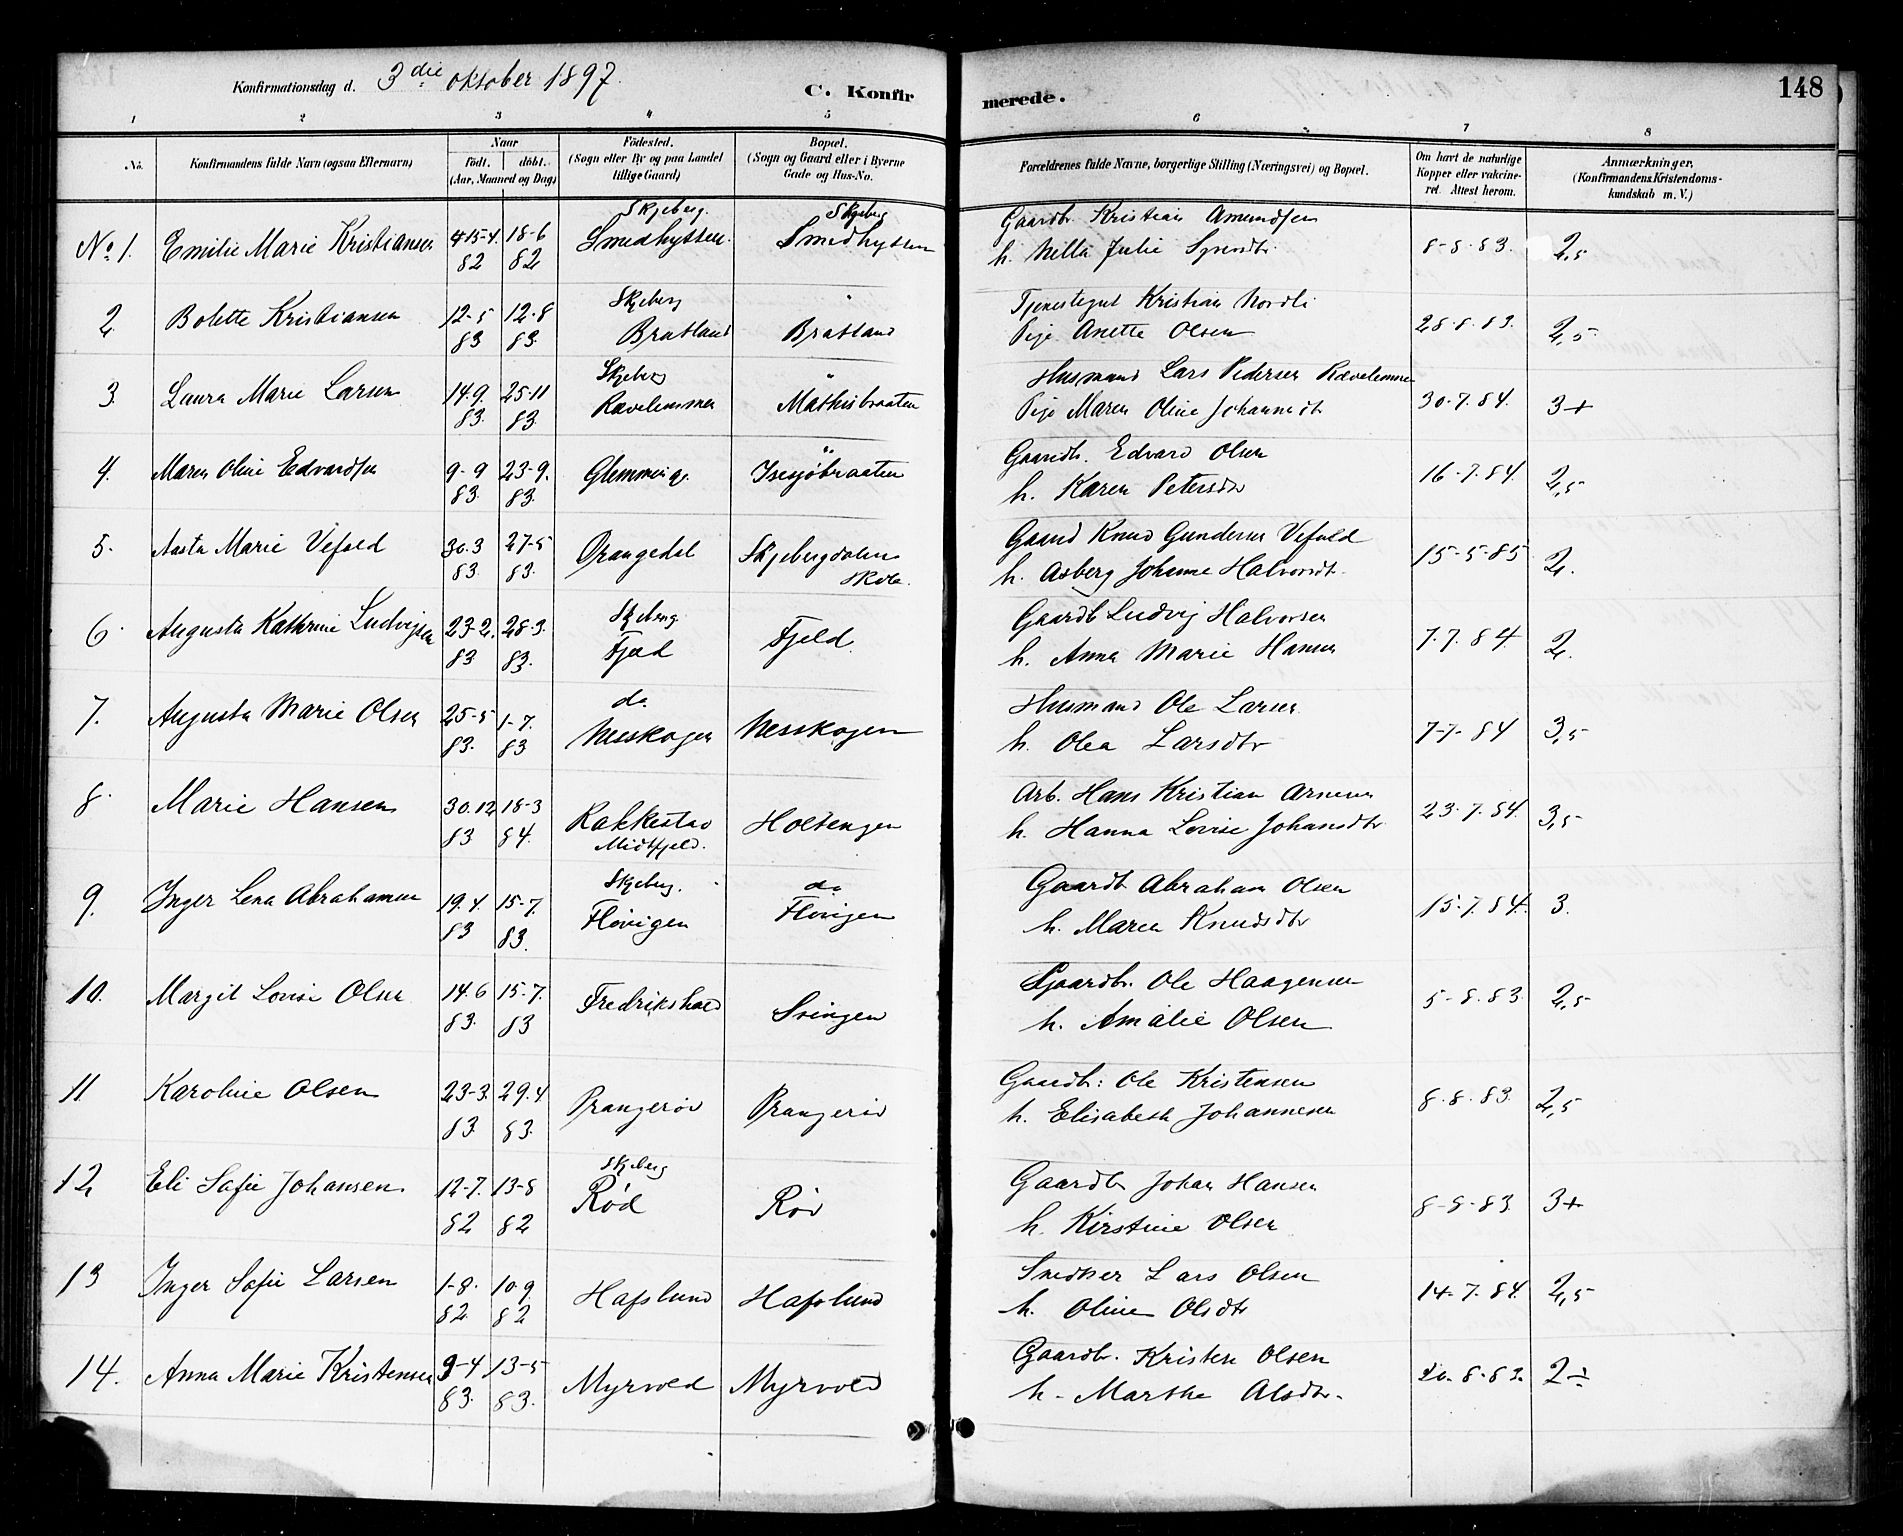 Konfirmationsdag d. 3die oktober 1897. C. Konfir merede. 148
1 2 3 4 5 6 7 8
No. Konfirmandens fulde Navn (ogsaa Efternavn) Naar født. døbt. (Aar, Maaned og Dag) Fødested. (Sogn eller By og paa Landet tillige Gaard) Bopæl. (Sogn og Gaard eller i Byerne Gade og Hus-No. Forældrenes fulde Navne, borgerlige Stilling (Næringsvei) og Bopæl. Om havt de naturlige Kopper eller vakcineret. Attest herom. Anmærkninger, (Konfirmandens Kristendomskundskab m. V.)
Skjeberg. Skjeberg Gaardbr. Kristian Amundsen
No 1. Emilie Marie Kristiansen 15-4. 18-6 Smedhytten. Smedhytten 8-8-83. 2,5
82 82 h. Milla Julie
Skjeberg " Tjenestegut Kristian Nordli
2 Bolette Kristiansen 12-5 12-8 Bratland Bratland 28-8-83. 2,5
83 83. Pige Anette Olsen
Skjeberg " Husmand Lars Pedersen Rævelemmen
3. Laura Marie Larsen 14-9. 25-11 Rævelemmen Mathisbraaten 30-7.84. 3+
83. 83. Pige Maren Oline Johannsdt
4. Maren Oline Edvardsen 9-9 23-9. Glemminge. Isesjøbraaten Gaardb. Edvard Olsen 16-7.84. 2,5
83. 83. h. Karen Petersdtr
5. Aasta Marie Vefald 30.3 27-5 Drangedal Skjebergdalens Gaard Knud Gundersen Vefald 15-5-85 2.
83. 83. Skole. h. Asberg Johanne Halvorsdt.
6. Augusta Kathrine Ludvigsen 23-2. 28-3. Skjeberg. Fjeld. Gaardb Ludvig Halvorsen 7-7.84. 2.
83 83. Fjeld h. Anna Marie Hansen
7. Augusta Marie Olsen 25-5 1-7. do. Nesskogen Husmand Ole Larsen 7-7-84 3,5
83. 83 Nesskogen h. Olea Larsdtr
8. Marie Hansen 30.12 18-3 Rakkestad Holtengen Arb. Hans Kristian Arnesen 23.7.84. 3,5
83 84. Midtfjeld. h. Hanna Lovise Johansdtr
9. Inger Lena Abrahamsen 19.4. 15-7. Skjeberg. do Gaardb Abraham Olsen 15-7.84. 3.
83 83. Fløvigen Fløvigen h. Maren Knudsdtr
10. Margit Lovise Olsen 14.6 15-7. Fredrikshald Svingen Gaardbr. Ole Haagensen 5-8.83. 2,5
83. 83 h. Amalie Olsen
11. Karoline Olsen 23-3. 29.4 Prangerød Prangerød Gaardb: Ole Kristensen 8.8.83. 2,5
83. 83. h. Elisabeth Johannesen
12. Eli Sofie Johansen 12-7. 13-8 Skjeberg Rød Gaardb Johan Hansen 8-8-83. 3+
82 82 Rød h. Kirstine Olsen
13 Inger Sofie Larsen 1-8. 10.9. Hafslund Hafslund Snedker Lars Olsen 14-7.84. 2,5
82. 82 h. Oline Olsdtr
14. Anna Marie Kristensen 9-4 13-5 Myrvold Myrvold Gaardbr. Kristen Olsen 20.8-83. 2÷
83. 83. h. Marthe Olsdtr.